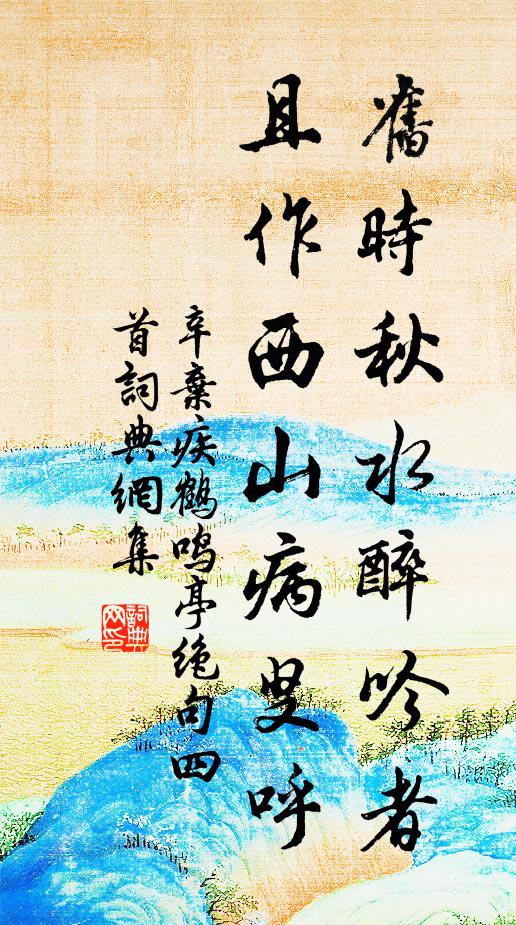 舊時秋水醉吟者
且作西山病叟呼
辛棄疾鶴鳴亭絶句四
首詞典網集
詞典
网印